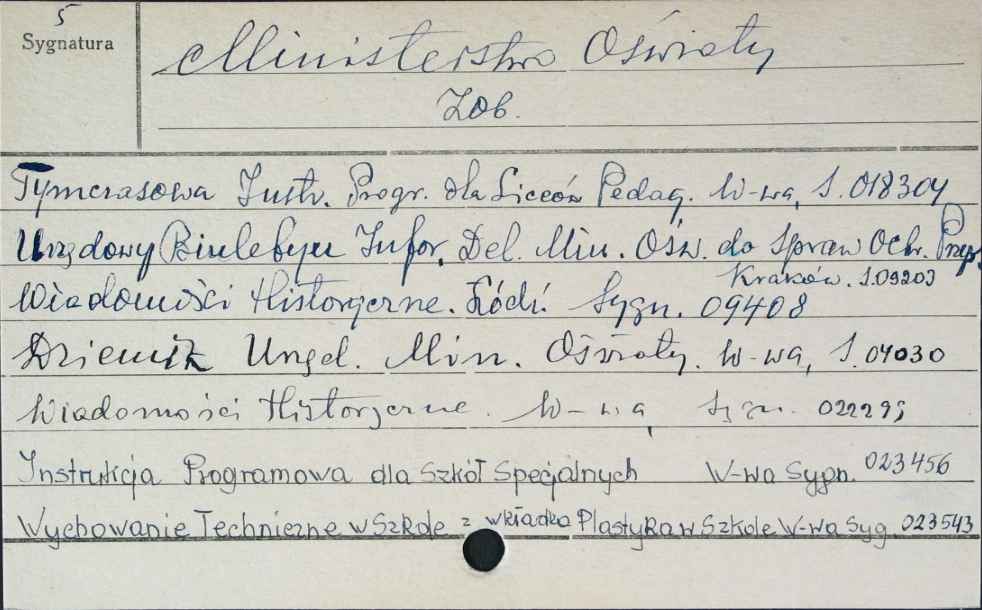 5
Sygnatura
Ministerstwo Oświaty
Zob.
Tymczasowa Instr. Progr. dla Liceów Pedag. W-wa, S. 018304
Urzędowy Biuletyn Infor. Del. Min. Ośw. do Spraw Ochr. Przyr.
Kraków. S.09203
Wiadomości Historyczne. Łódź. Sygn. 09408
Dziennik Urzęd. Min. Oświaty. W-wa, S. 04030
Wiadomości Historyczne. W-wa, Sygn. 022295
Instrukcja Programowa dla Szkół Specjalnych W-wa Sygn. 023456
Wychowanie Techniczne w Szkole z wkładką Plastyka w Szkole W-wa Syg. 023543